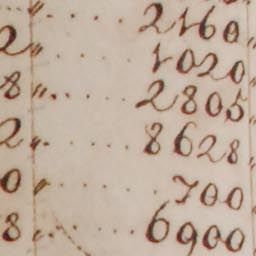 " .... 2160
2 " .... 1020
8 " ..... 2805
2 " ..... 8628
0 " ..... 700
8 " ..... 6900